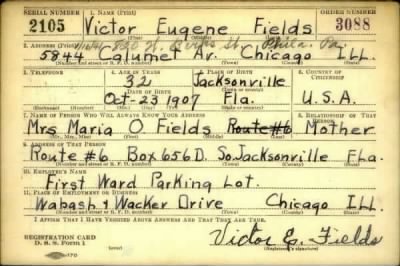 SERIAL NUMBER 1. NAME (Print) ORDER NUMBER
2105 Victor Eugene Fields 3088
2. ADDRESS (Print) Phila. Pa
5844 Calumet Av. Chicago ILL.
3. TELEPHONE 4. AGE IN YEARS 5. PLACE OF BIRTH 6. COUNTRY OF CITIZENSHIP
32 Jacksonville
DATE OF BIRTH
Oct-23 1907 Fla. U.S.A.
7. NAME OF PERSON WHO WILL ALWAYS KNOW YOUR ADDRESS 8. RELATIONSHIP OF THAT PERSON
Mrs Maria O. Fields Route #6 Mother
(Mr., Mrs., Miss) (First) (Middle) (Last)
9. ADDRESS OF THAT PERSON
Route #6 Box 656D. So. Jacksonville FLa.
(Number and street or R. F. D. number) (Town) (County) (State)
10. EMPLOYER'S NAME
First Ward Parking Lot.
11. PLACE OF EMPLOYMENT OR BUSINESS
Wabash & Wacker Drive Chicago ILL.
(Number and street or R. F. D. number) (Town) (County) (State)
I AFFIRM THAT I HAVE VERIFIED ABOVE ANSWERS AND THAT THEY ARE TRUE.
REGISTRATION CARD
D. S. S. Form 1
Victor E. Fields
(Registrant's signature)